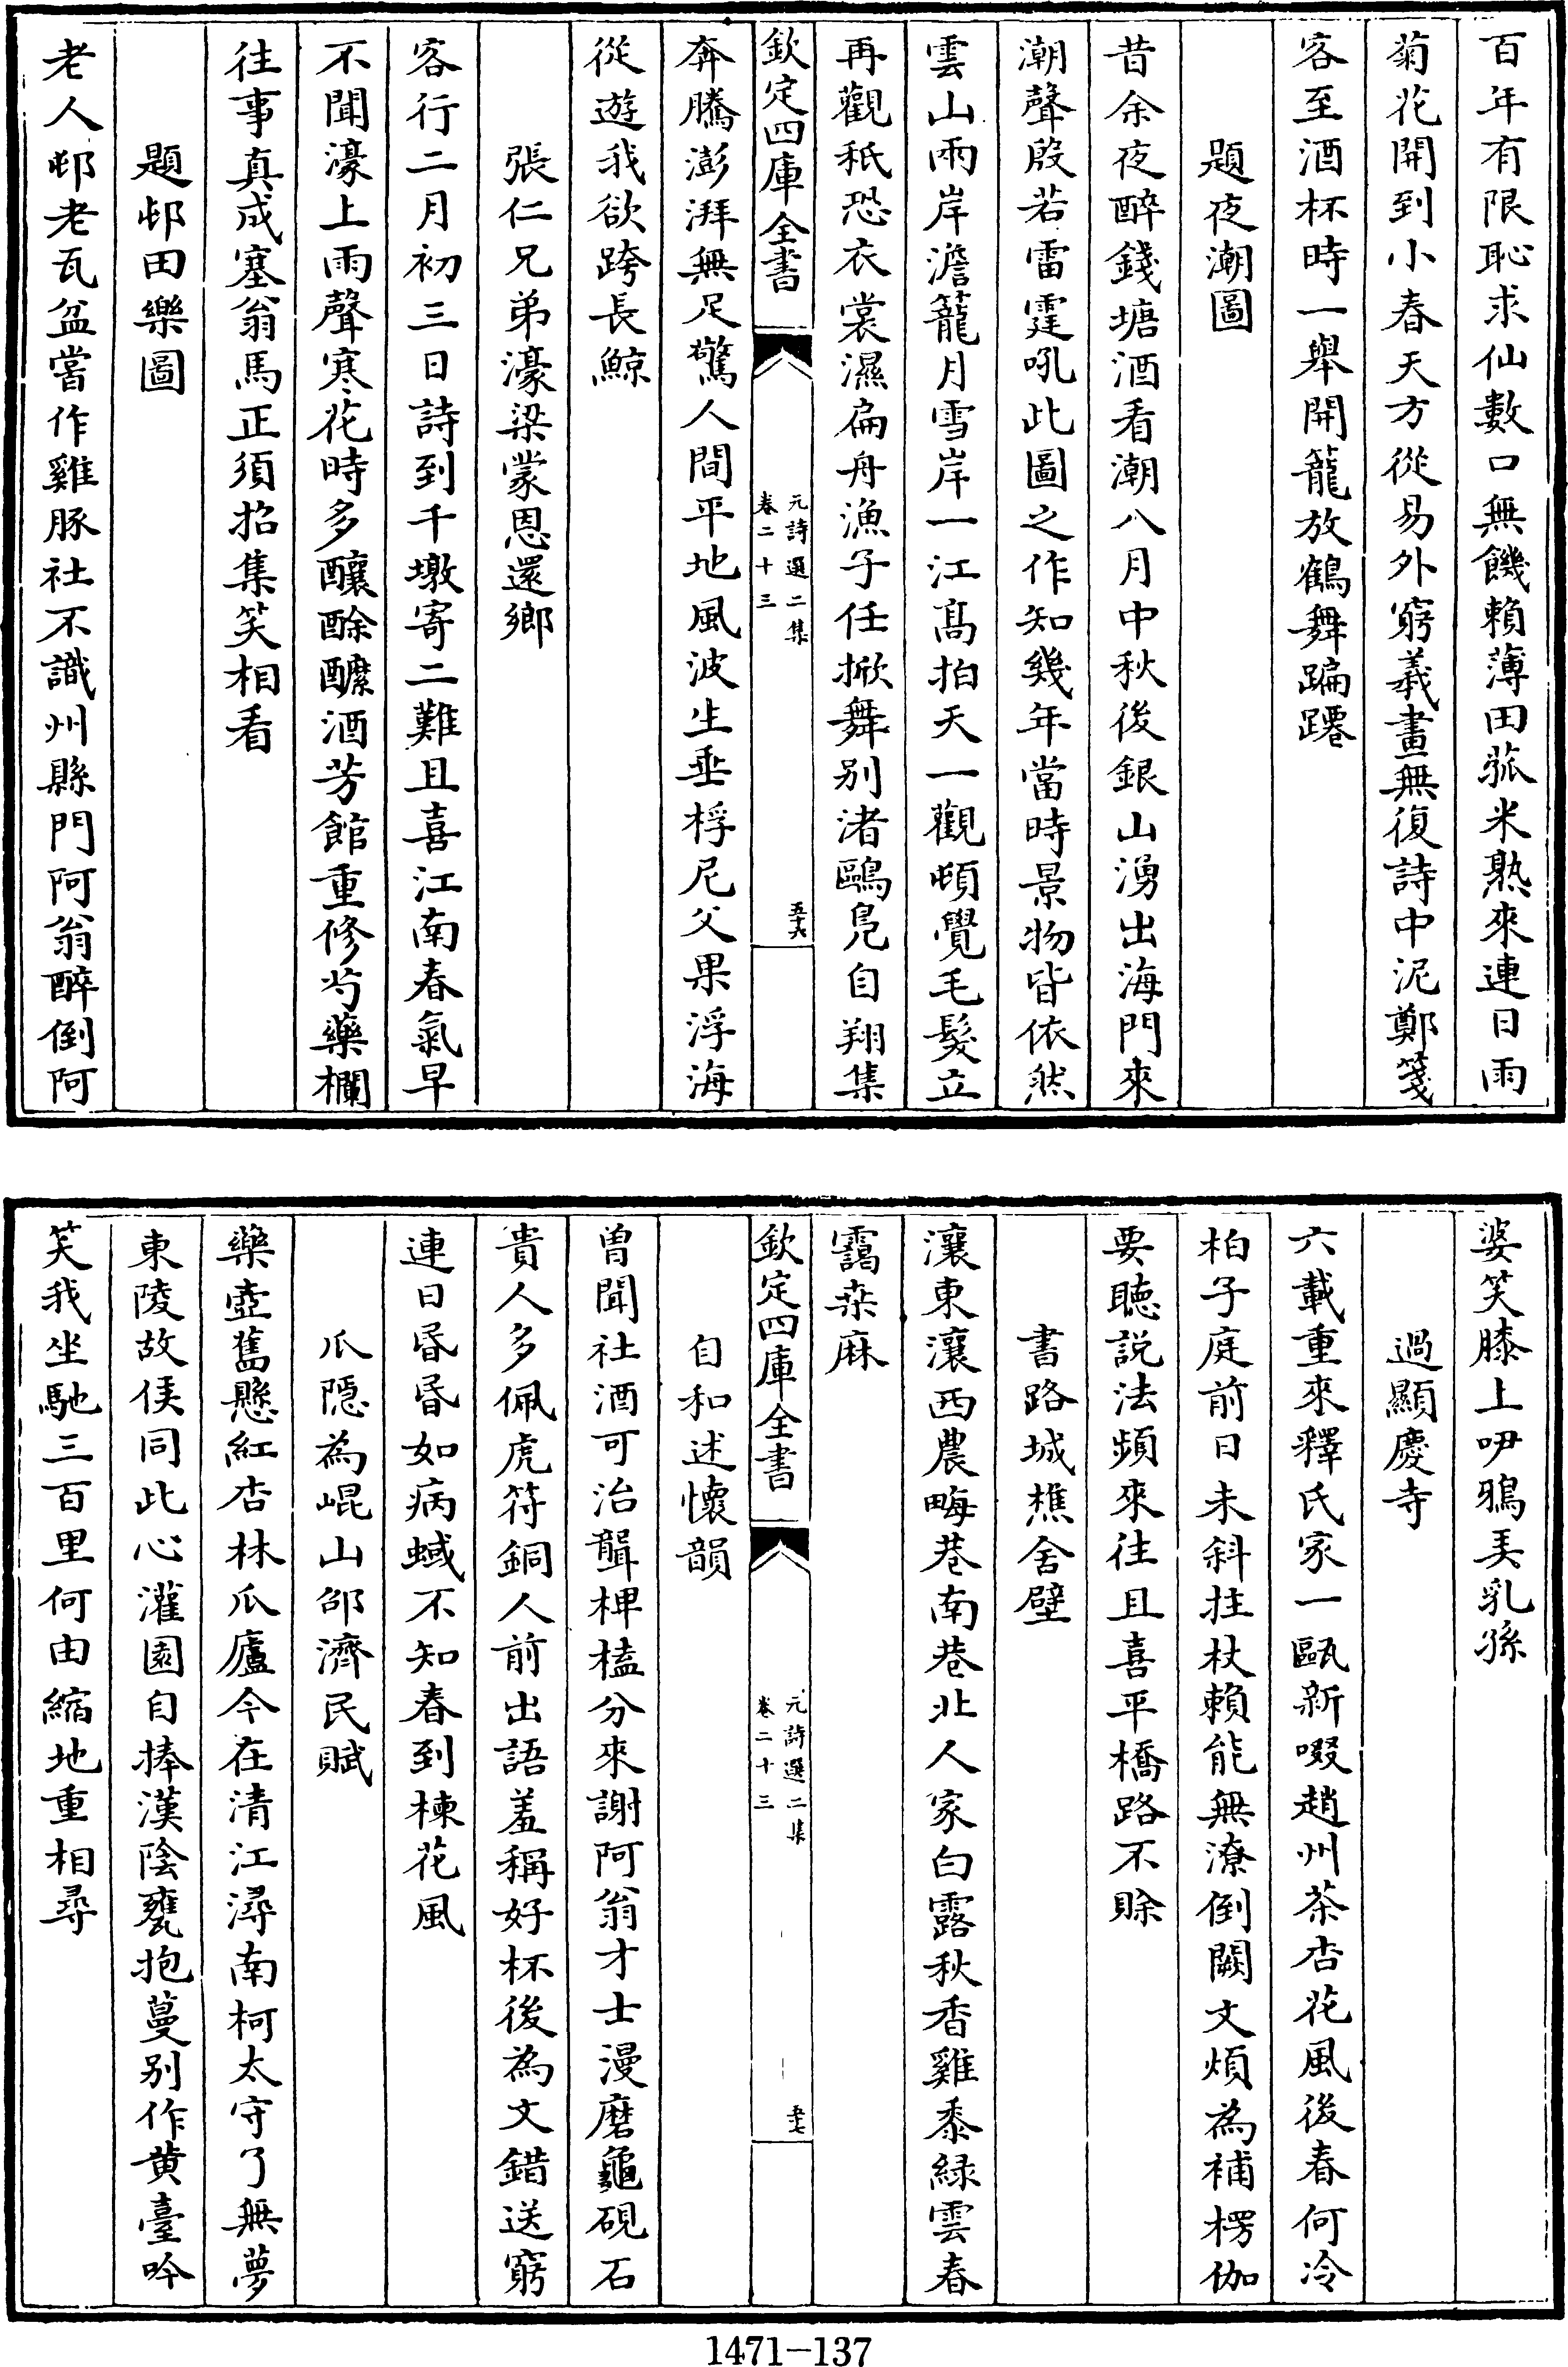 百年有限恥求仙數口無饑賴薄田菰米熟來連日雨
菊花開到小春天方從易外窮羲畫無復詩中泥鄭箋
客至酒杯時一舉開籠放鶴舞蹁躚
題夜潮圖
昔余夜醉錢塘酒看潮八月中秋後銀山湧出海門來
潮聲殷若雷霆吼此圖之作知幾年當時景物皆依然
雲山兩岸澹籠月雪岸一江髙拍天一觀頓覺毛髮立
再觀秖恐衣裳濕扁舟漁子任掀舞别渚鷗鳧自翔集
欽定四庫全書
元詩選二集
卷二十三
五十六
奔騰澎湃無足驚人間平地風波生乗桴尼父果浮海
從遊我欲跨長鯨
張仁兄弟濠梁蒙恩還鄉
客行二月初三日詩到千墩寄二難且喜江南春氣早
不聞濠上雨聲寒花時多釀酴醿酒芳館重修芍藥欄
往事真成塞翁馬正須招集笑相看
題邨田樂圖
老人邨老瓦盆嘗作雞豚社不識州縣門阿翁醉倒阿
婆笑膝上吚鴉弄乳孫
過顯慶寺
六載重來釋氏家一甌新啜趙州茶杏花風後春何冷
柏子庭前日未斜拄杖賴能無潦倒闕文煩為補楞伽
要聽説法頻來往且喜平橋路不賒
書路城樵舍壁
瀼東瀼西農畮巷南巷北人家白露秋香雞黍緑雲春
靄桒麻
欽定四庫全書
元詩選二集
卷二十三
五十七
自和述懷韻
曽聞社酒可治聾椑榼分來謝阿翁才士漫磨龜硯石
貴人多佩虎符銅人前出語羞稱好杯後為文錯送窮
連日昏昏如病蜮不知春到楝花風
瓜隠為崐山邵濟民賦
藥壺舊懸紅杏林瓜廬今在清江潯南柯太守了無夢
東陵故侯同此心灌園自捧漢陰甕抱蔓别作黄臺吟
笑我坐馳三百里何由縮地重相尋
1471-137